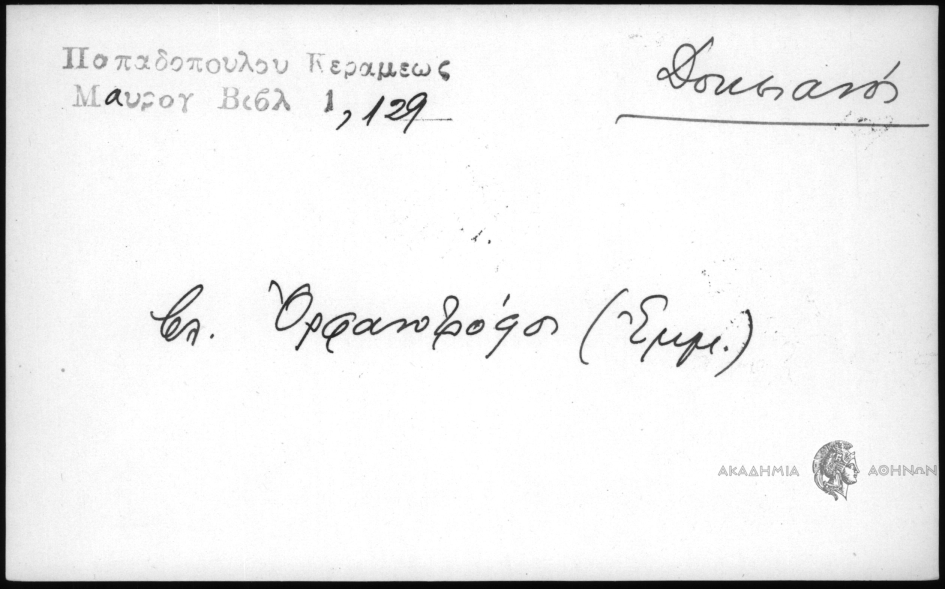 Παπαδοπουλου Κεραμεως
Μαυρογ Βιβλ 1, 129
Δοκιανός
βλ. Ὀρφανοτρόφοι (Ἐμμ.)
ΑΚΑΔΗΜΙΑ ΑΘΗΝΩΝ